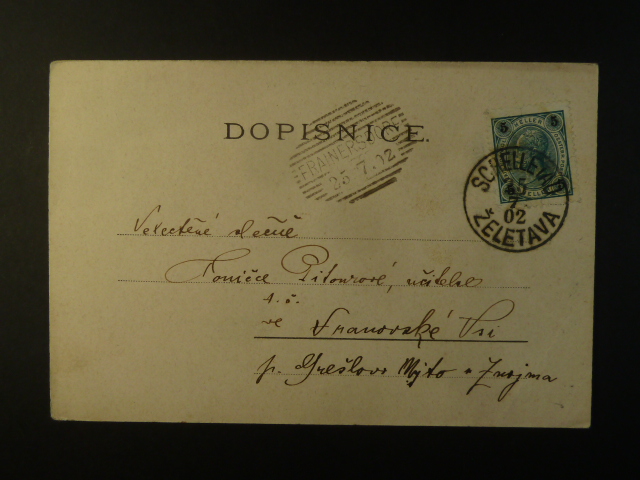 DOPISNICE.
FRAINERSDORF
25.7.02
5 HELLER 5
SCHELLETAU
25
7
02
ŽELETAVA
Velectěné slečně
Toničce Pitourové, učitelce
t. č.
ve Vranovské Vsi
p. Grešlovo Mýto u Znojma